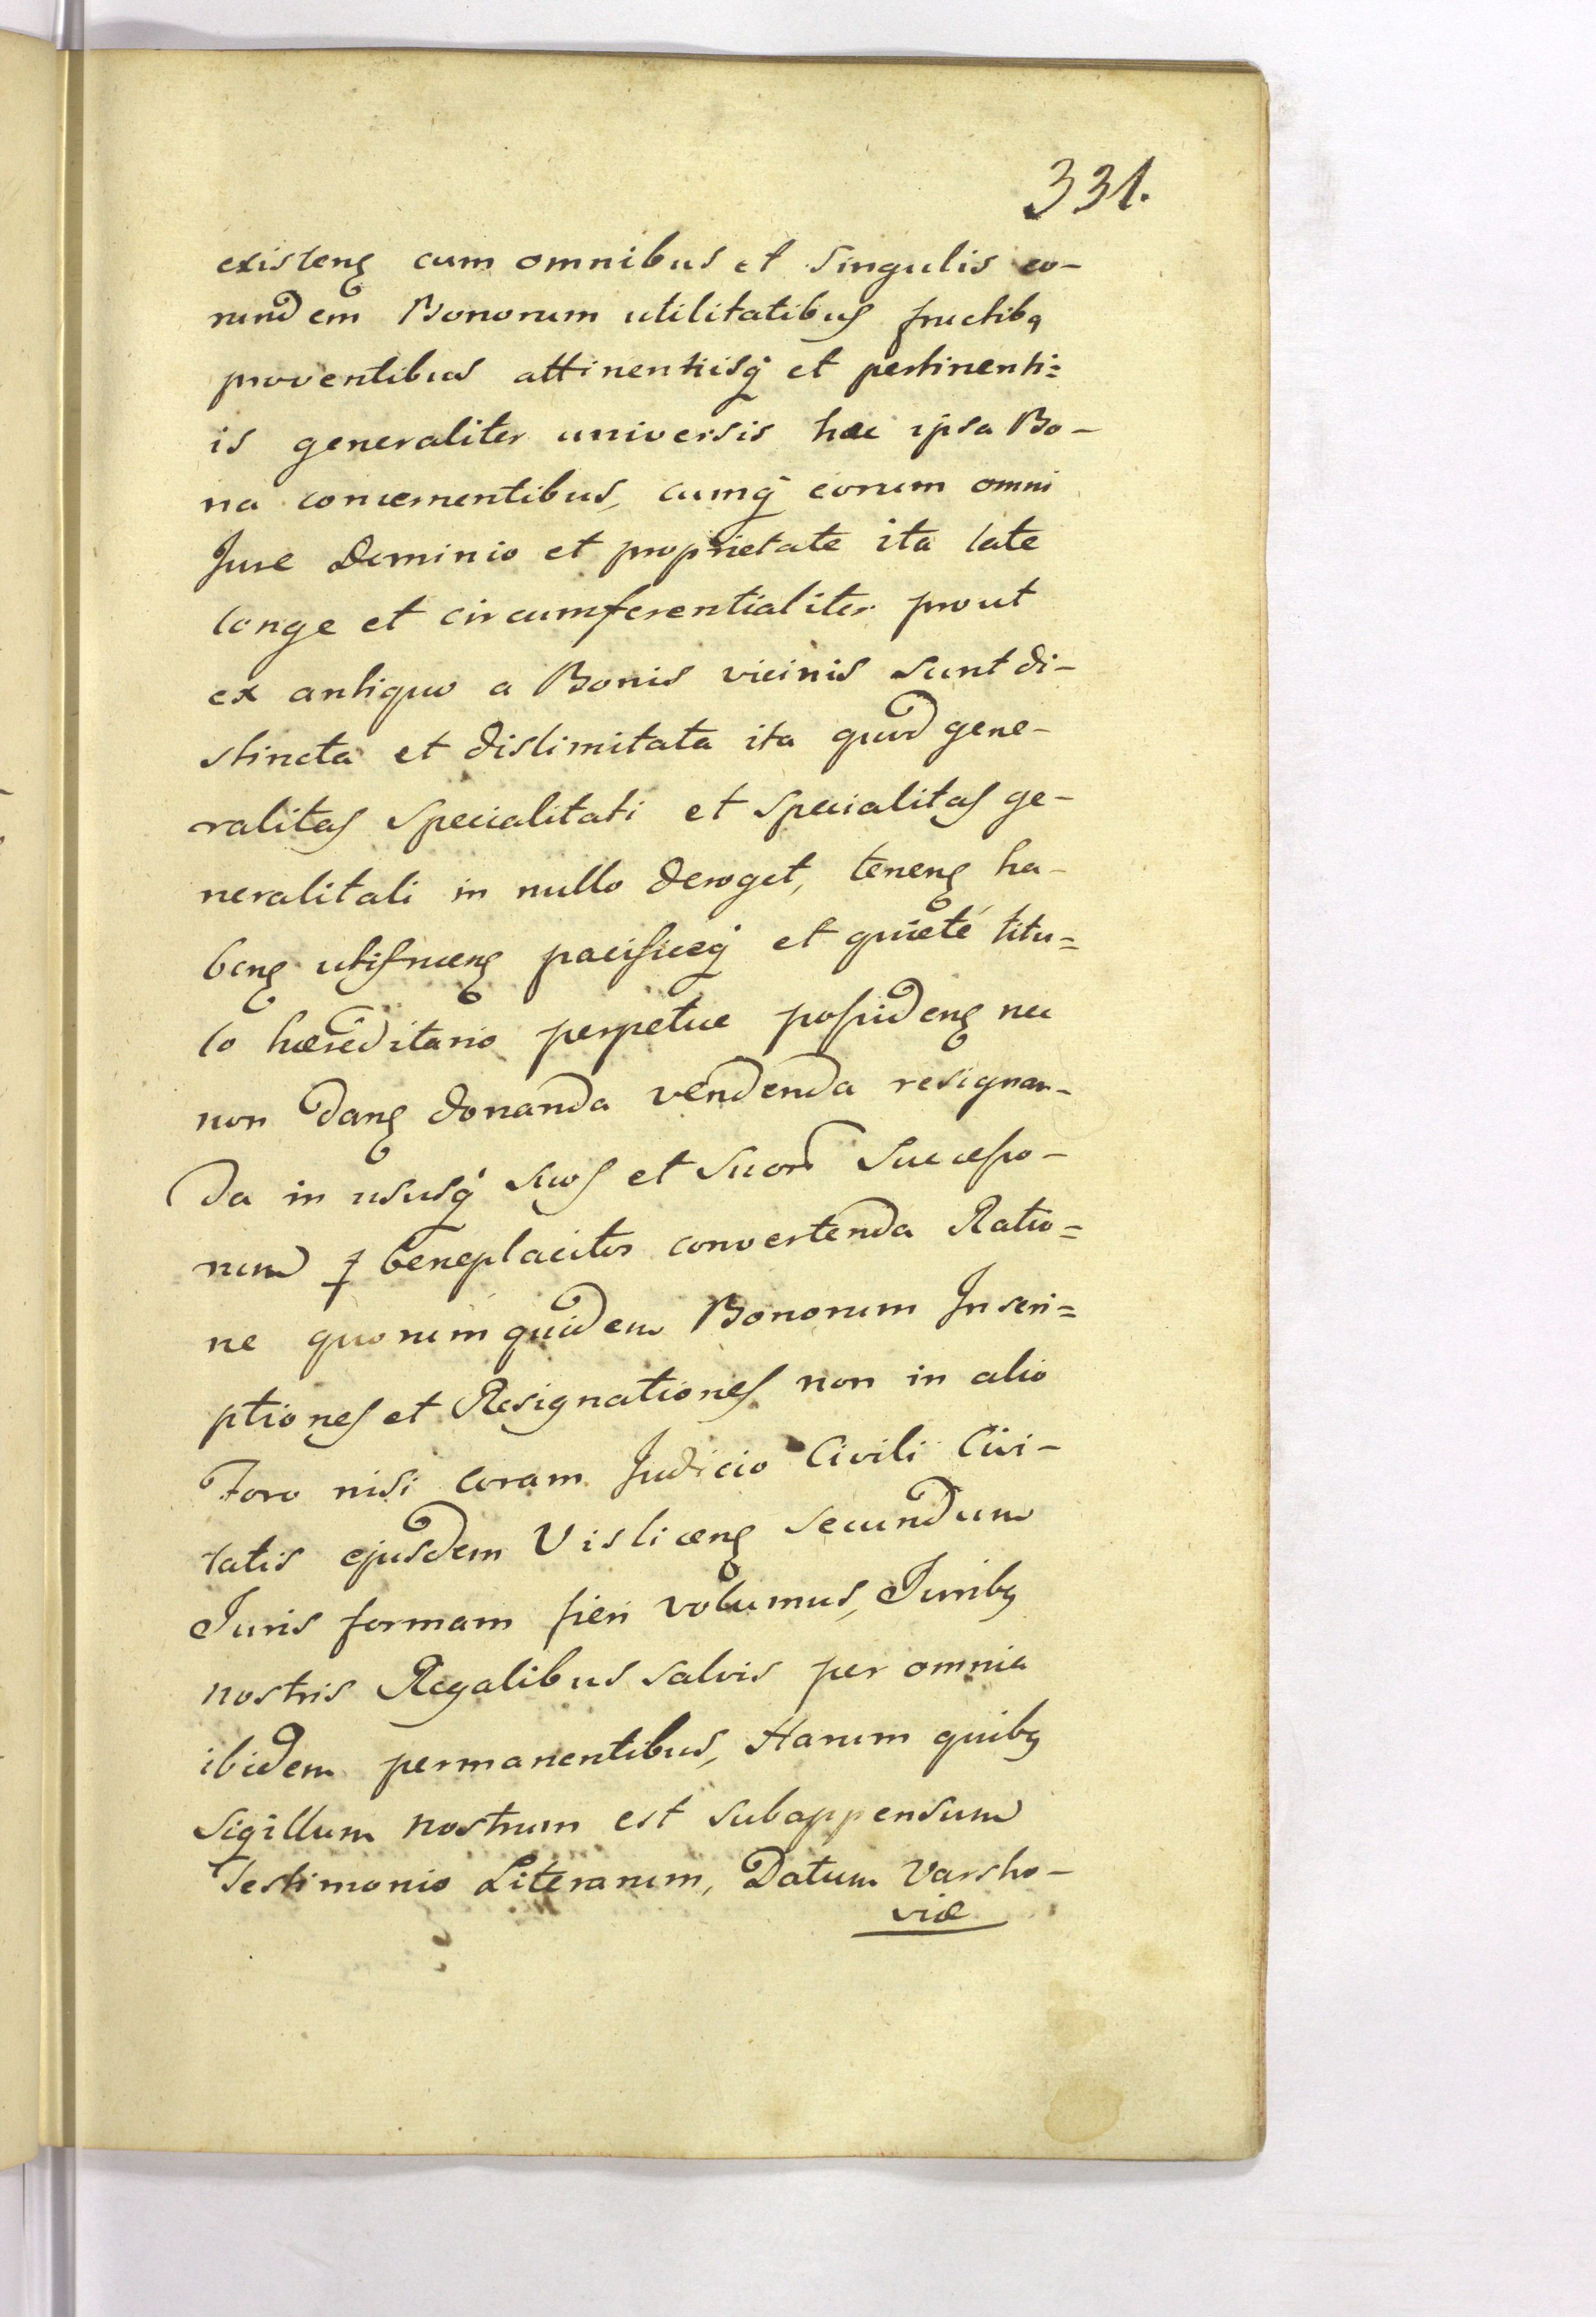 331.
existenꝭ cum omnibus et singulis eo-
rundem Bonorum utilitatibus fructibꝯ
proventibus attinentiisq̃ et pertinenti=
is generaliter universis hæc ipsa Bo-
na concernentibus, cumq̃ eorum omni
Jure Dominio et proprietate ita late
longe et circumferentialiter prout
ex antiquo a Bonis vicinis sunt di-
stincta et dislimitata ita quod gene-
ralitas specialitati et specialitas ge-
neralitati in nullo deroget, tenenꝭ ha-
benꝭ utifruenꝭ pacificeq̃ et quieté titu=
lo hæreditario perpetue possidenꝭ nec
non danꝭ donanda vendenda resignan-
da in ususq̃ suos et suor̃ Successo-
rum ꝓ beneplacitis convertenda Ratio=
ne quorum quidem Bonorum Inscri=
ptiones et Resignationes non in alio
Foro nisi coram Judicio Civili Civi-
tatis ejusdem Vislicenꝭ secundum
Juris formam fieri volumus, Juribꝯ
nostris Regalibus salvis per omnia
ibidem permanentibus, Harum quibꝯ
Sigillum nostrum est subappensum
Testimonio Literarum, Datum Varsho-
viæ